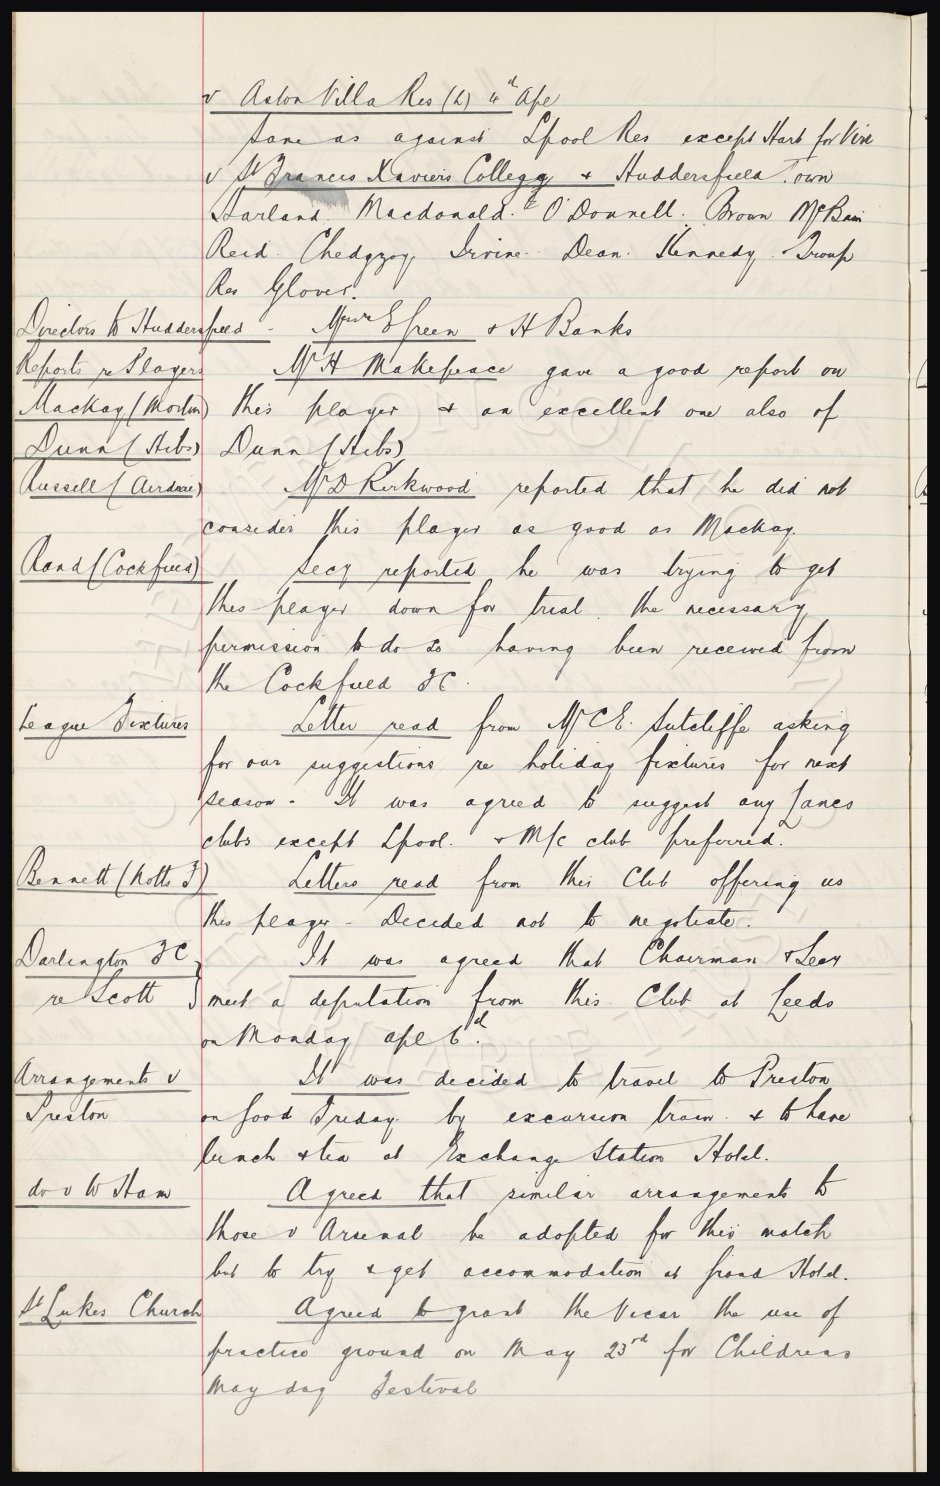 v Aston Villa Res (L) 4th Ape
Same as against Lpool Res except Hart for Virr
v St Francis Xaviers College & Huddersfield Town
Harland. Macdonald. O'Donnell. Brown McBain
Reid. Chedgzoy. Irvine. Dean. Kennedy. Troup
Res Glover.
Directors to Huddersfield - Messrs E Green & H Banks
Reports re Players Mr H Makepeace gave a good report on
Mackay (Morton) this player & an excellent one also of
Dunn (Hibs) Dunn (Hibs)
Russell (Airdrie) Mr D Kirkwood reported that he did not
consider this player as good as Mackay.
Rand (Cockfield) Secy reported he was trying to get
this player down for trial. the necessary
permission to do so having been received from
the Cockfield FC.
League Fixtures Letter read from Mr C E. Sutcliffe asking
for our suggestions re holiday fixtures for next
season - It was agreed to suggest any Lancs
clubs except Lpool. & M/c club preferred.
Bennett (Notts F) Letters read from this Club offering us
this player - Decided not to negotiate.
Darlington FC It was agreed that Chairman & Secy
re Scott meet a deputation from this Club at Leeds
on Monday ape 6d.
Arrangements v It was decided to travel to Preston
Preston on Good Friday by excursion train & to have
lunch & tea at Exchange Station Hotel.
do v W Ham Agreed that similar arrangements to
those v Arsenal be adopted for this match
but to try & get accommodation at Grand Hotel.
St Lukes Church Agreed to grant the Vicar the use of
practice ground on May 23rd for Childrens
May day Festival